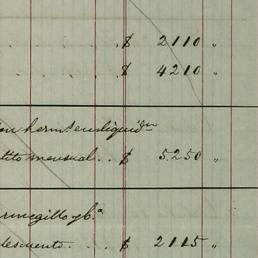 . $ 2110 "
. $ 4210 "
en herm.s en liquid.on
tito mensual . . $ 5250 "
rmegillo y C.a
descuento . . . . $ 2115 "